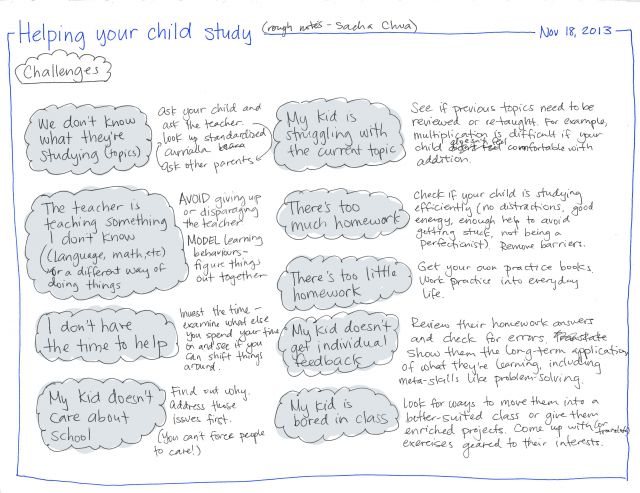 Helping your child study (rough notes - Sacha Chua)
Nov 18, 2013
Challenges
We don't know
what they're
studying (topics)
Ask your child and
ask the teacher.
look up standardized
curricula
ask other parents.
The teacher is
teaching something
I don't know
(language, math, etc)
or a different way of
doing things
AVOID giving up
or disparaging
the teacher
MODEL learning
behaviours-
figure things
out together
I don't have
the time to help
Invest the time -
examine what else
you spend your time
on and see if you
can shift things
around.
My kid doesn't
care about
school
Find out why.
Address those
issues first.
(You can't force people
to care!)
My kid is
struggling with
the current topic
See if previous topics need to be
reviewed or re-taught. For example,
multiplication is difficult if your
child doesn't feel comfortable with
addition.
There's too
much homework
Check if your child is studying
efficiently (no distractions, good
energy, enough help to avoid
getting stuck, not being a
perfectionist). Remove barriers.
There's too little
homework
Get your own practice books.
Work practice into everyday
life.
My kid doesn't
get individual
feedback
Review their homework answers
and check for errors. Translate
Show them the long-term application
of what they're learning, including
meta-skills like problem-solving.
My kid is
bored in class
Look for ways to move them into a
better-suited class or give them
enriched projects. Come up with (or translate)
exercises geared to their interests.